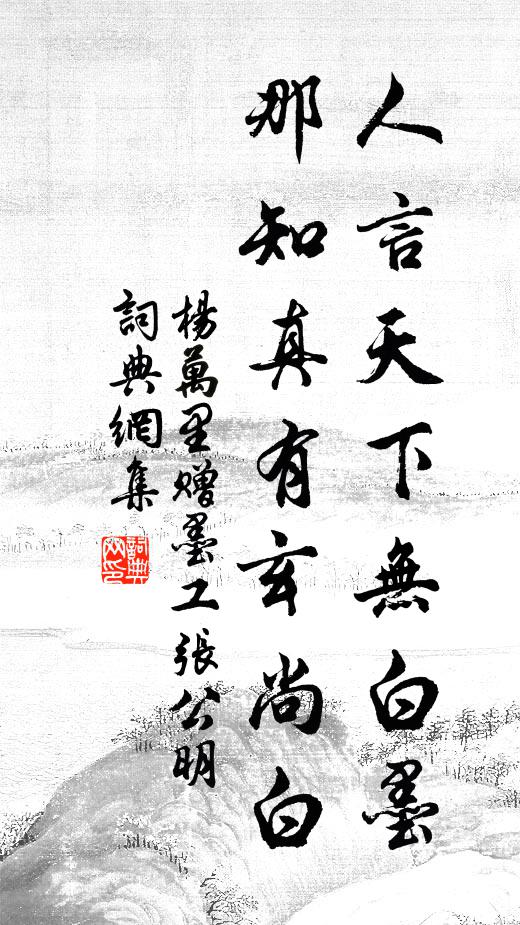 人言天下無白墨
那知真有玄尚白
楊萬里贈墨工張公明
詞典網集
詞典網印